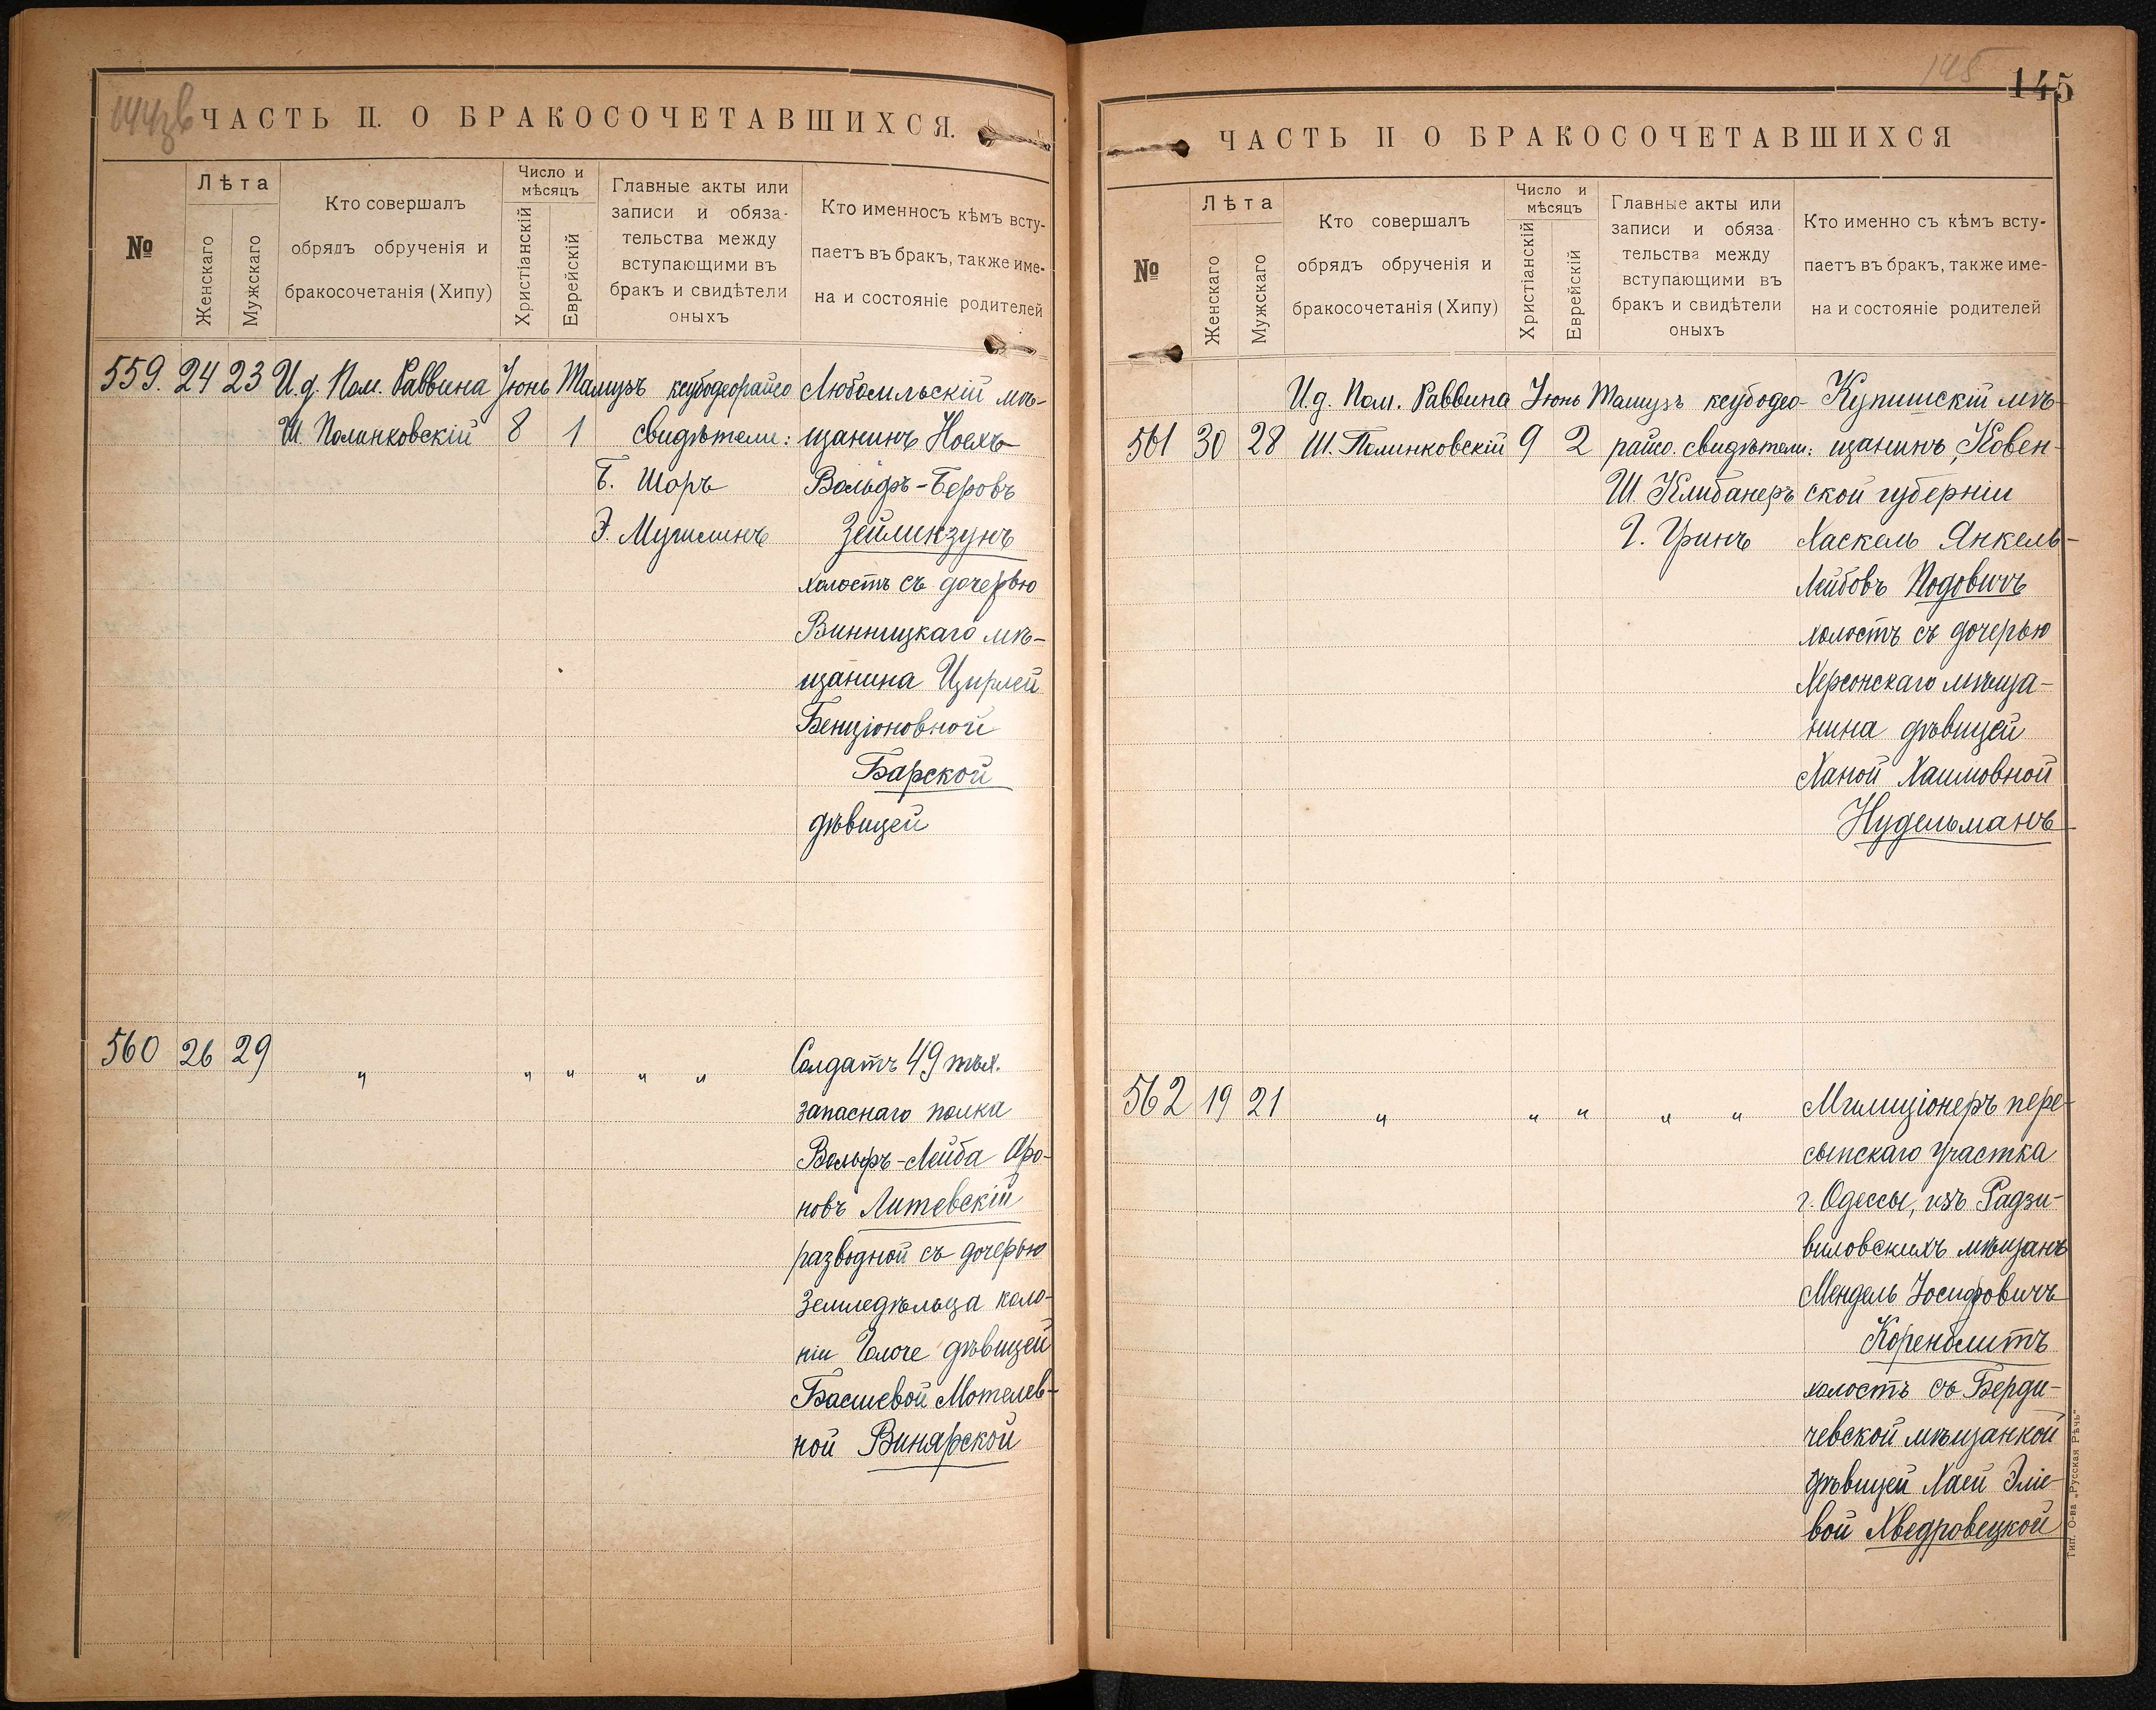 144зв
ЧАСТЬ II. О БРАКОСОЧЕТАВШИХСЯ.
№
Лѣта
Женскаго
Мужскаго
Кто совершалъ
обрядъ обрученія и
бракосочетанія (Хипу)
Число и
мѣсяцъ
Христіанскій
Еврейскій
Главные акты или
записи и обяза-
тельства между
вступающими въ
бракъ и свидѣтели
оныхъ
Кто именносъ кѣмъ всту-
паетъ въ бракъ, также име-
на и состояніе родителей
559. 24 23 И.д. Пом. Раввина Іюнь Тамузъ ксубодеорайсо Любомльскій мѣ-
Ш. Полинковскій 8 1 свидѣтели: щанинъ Ноехъ
Б. Шоръ Вольфъ-Беровъ
Э. Мучилинъ Зейликзунъ
холостъ съ дочерью
Винницкаго мѣ-
щанина Цирлей
Бенціоновной
Барской
дѣвицей
560 26 29 " " " " " Солдатъ 49 пѣх.
запаснаго полка
Вольфъ-Лейба Аро-
новъ Литевскій
разводной съ дочерью
Земледѣльца коло-
ніи дѣвицей
Басшевой Мотелев-
ной Винярской
145
145
ЧАСТЬ II О БРАКОСОЧЕТАВШИХСЯ
№
Лѣта
Женскаго
Мужскаго
Кто совершалъ
обрядъ обрученія и
бракосочетанія (Хипу)
Число и
мѣсяцъ
Христіанскій
Еврейскій
Главные акты или
записи и обяза-
тельства между
вступающими въ
бракъ и свидѣтели
оныхъ
Кто именно съ кѣмъ всту-
паетъ въ бракъ, также име-
на и состояніе родителей
И.д. Пом. Раввина Іюнь Тамузъ ксубодео- Купишскій мѣ-
561 30 28 Ш. Полинковскій 9 2 райсо. свидѣтели: щанинъ, Ковен-
Ш. Клибанеръ ской губерніи
Г. Гринъ Хаскель Янкель-
Лейбовъ Подовичъ
холостъ съ дочерью
Херсонскаго мѣща-
нина дѣвицей
Ханой Хаимовной
Нудельманъ
562 19 21 " " " " " Милиціонеръ пере-
сыпскаго участка
г. Одессы, изъ Радзи-
виловскихъ мѣщанъ
Мендель Іосифовичъ
Коренблитъ
холостъ съ Берди-
чевской мѣщанкой
дѣвицей Хаей Эліе-
вой Хведровецкой
Тип. О-ва „Русская Рѣчь“